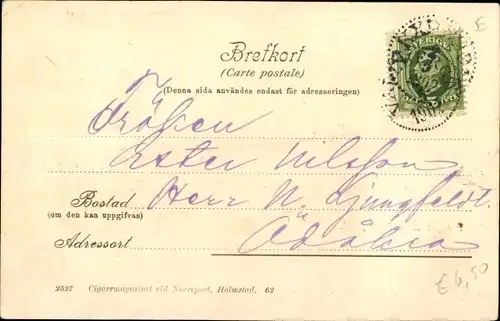 E
SVERIGE
Brefkort
(Carte postale)
(Denna sida användes endast för adresseringen)
Fröken
Ester Nilsson
Bostad Herr N. Ljungfeldt.
(om den kan uppgifvas)
Adressort
€ 6,50
2527 Cigarrmagasinet vid Norreport, Halmstad. 62